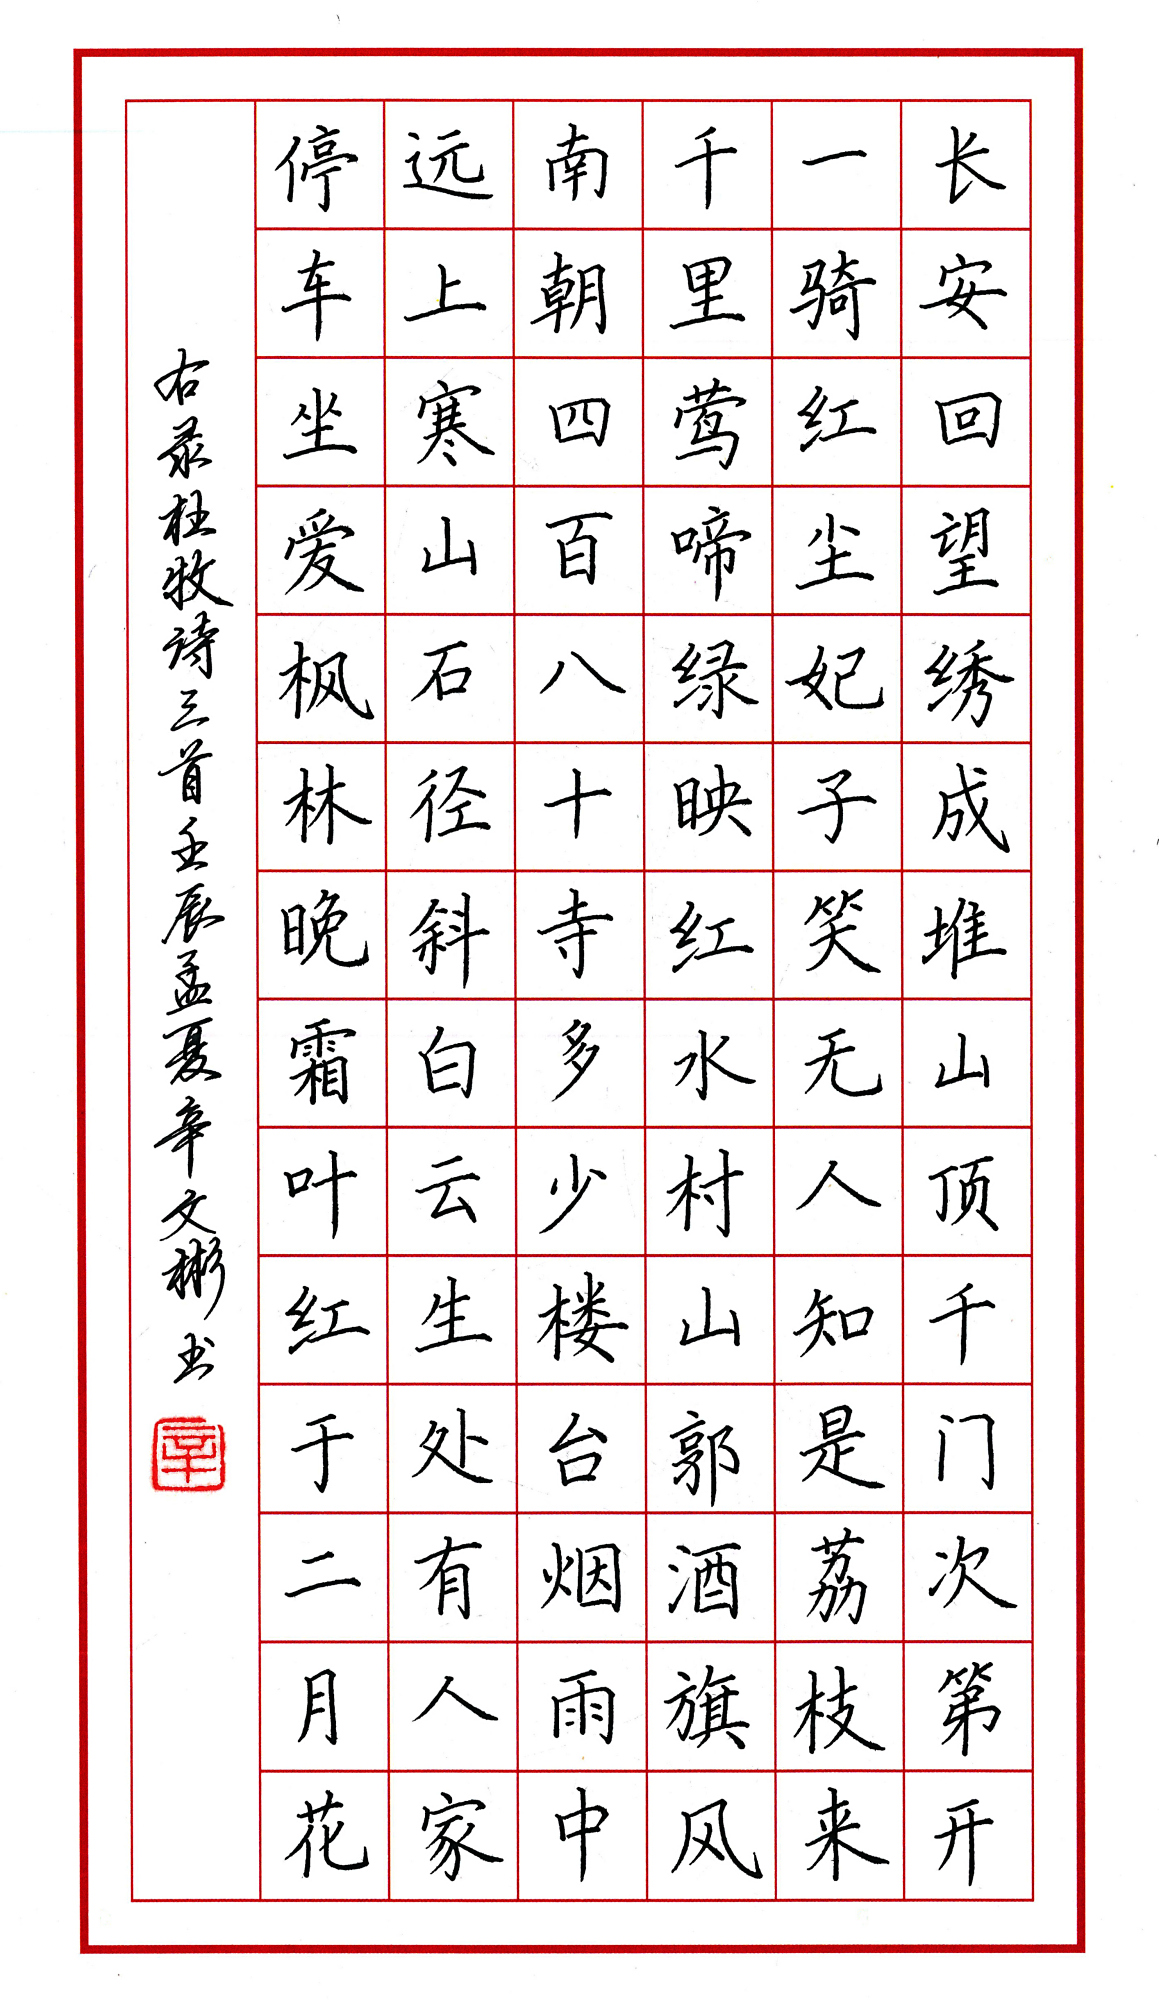 长安回望绣成堆山顶千门次第开
一骑红尘妃子笑无人知是荔枝来
千里莺啼绿映红水村山郭酒旗风
南朝四百八十寺多少楼台烟雨中
远上寒山石径斜白云生处有人家
停车坐爱枫林晚霜叶红于二月花
右录杜牧诗三首壬辰孟夏辛文彬书
辛